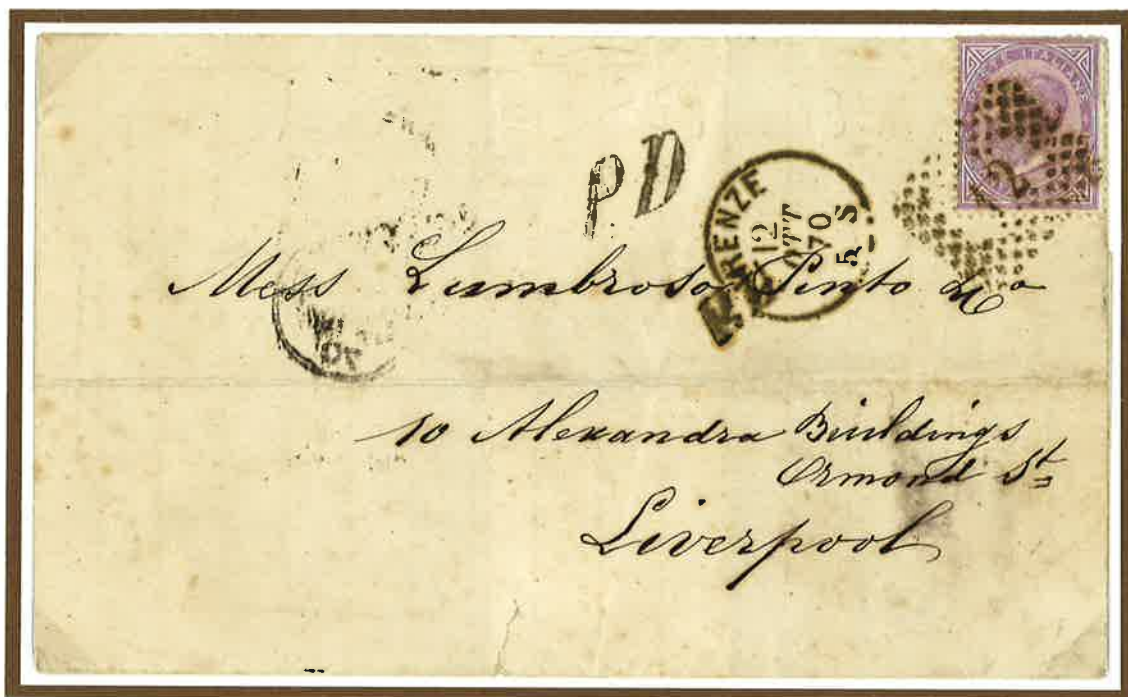 POSTE ITALIANE
P.D
FIRENZE
12
OTT
70
5 S
2
Mess Lumbroso Pinto & Co
10 Alexandra Buildings
Ormond St
Liverpool
70